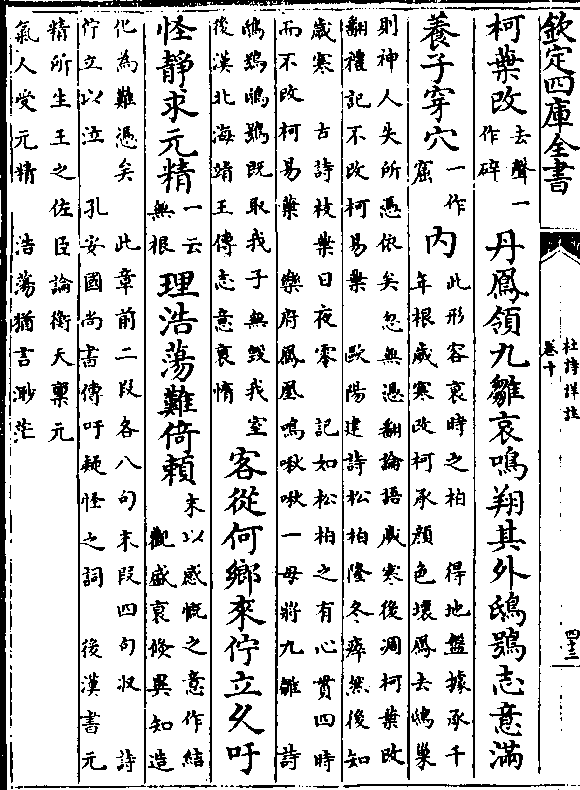 欽定四庫全書
杜詩詳註
卷十
柯葉改去聲一作碎丹鳳領九雛哀鳴翔其外鴟鴞志意滿
養子穿穴一作窟內此形容衰時之柏　得地盤據承千
年根歲寒改柯承顏色壞鳳去鴟巢
則神人失所憑依矣忽無憑翻論語歲寒後凋柯葉改
翻禮記不改柯易葉　歐陽建詩松柏隆冬瘁然後知
歲寒　古詩枝葉日夜零　記如松柏之有心貫四時
而不改柯易葉　樂府鳳凰鳴啾啾一母將九雛　詩
鴟鴞鴟鴞既取我子無毀我室
後漢北海靖王傳志意衰惰
客從何鄉來佇立久吁
怪靜求元精一云無根理浩蕩難倚賴末以感慨之意作結
觀盛衰倏異知造
化為難憑矣　此章前二段各八句末段四句收　詩
佇立以泣　孔安國尚書傳吁疑怪之詞　後漢書元
精所生王之佐臣論衡天稟元
氣人受元精　浩蕩猶言渺茫